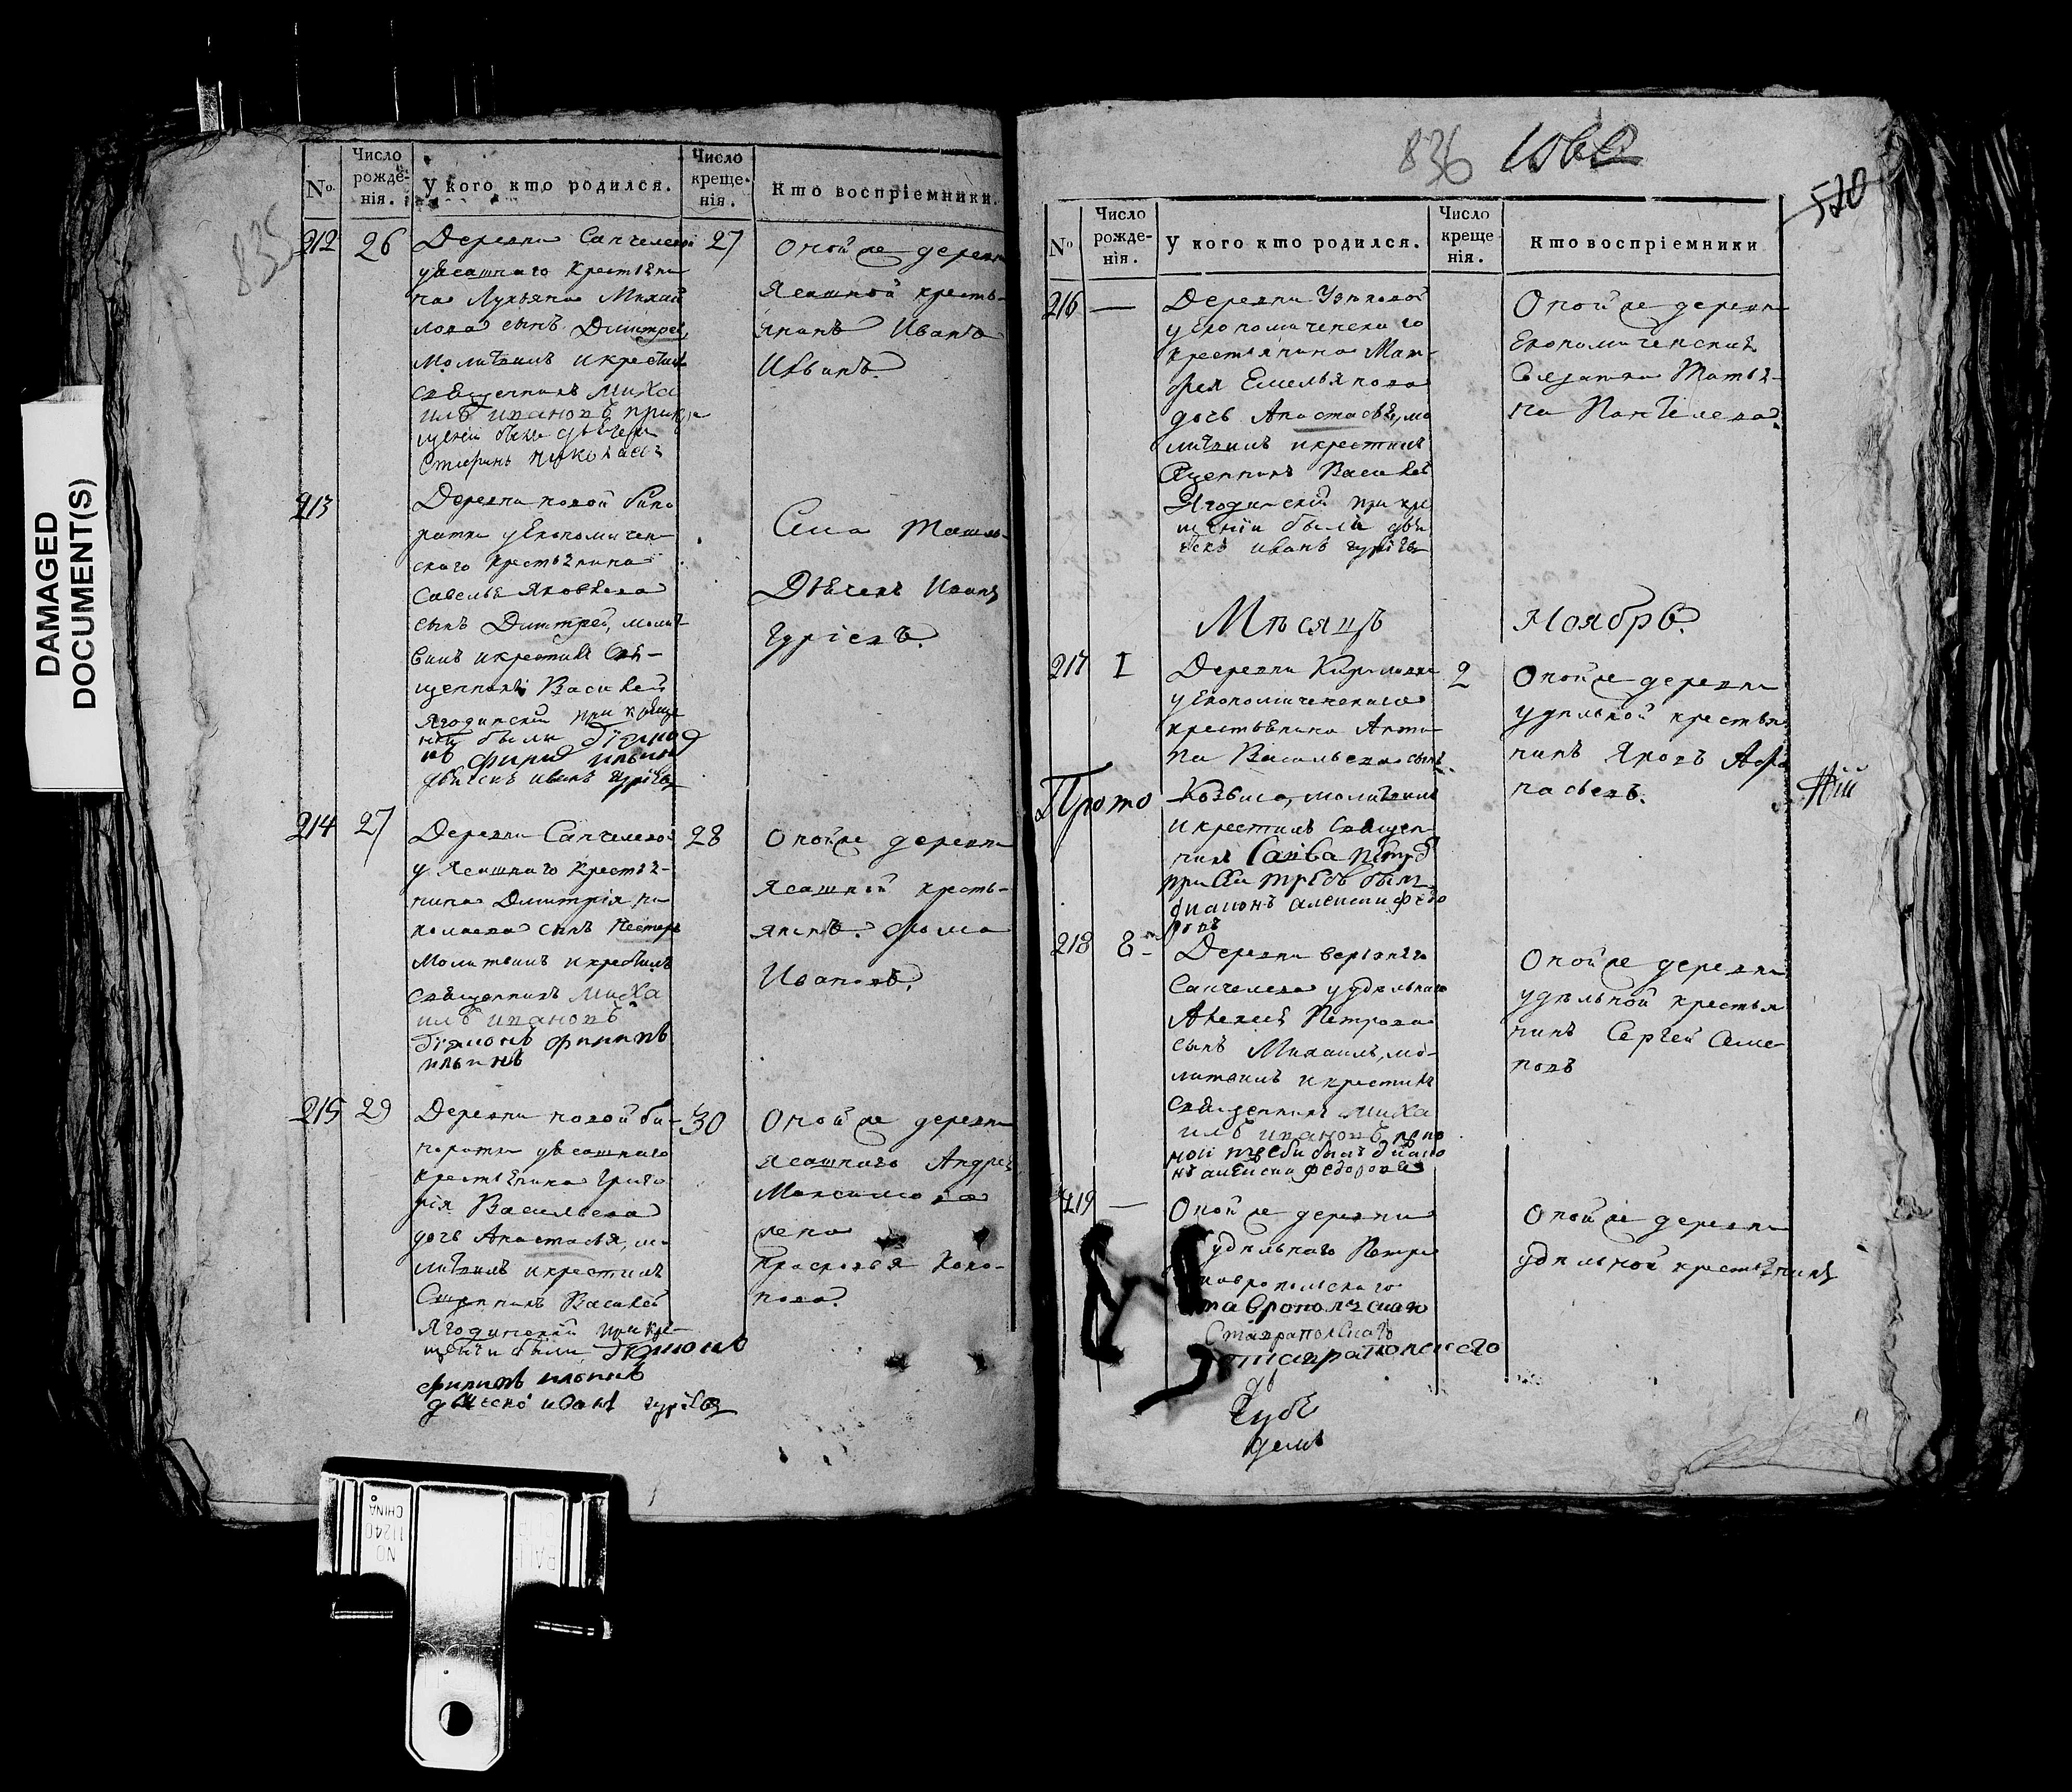 DAMAGED
DOCUMENT(S)
835
№
Число рожде-нія.
У кого кто родился.
Число креще-нія.
Кто воспріемники.
212 26
Деревни Санчелеевой
у Ясашнаго Крестьяни
на Лукьяна Михай
лова сынъ Димитрей,
молитвилъ и крестилъ
священникъ Миха
илъ ивановъ при кре
щеніи были
27
Оной же деревни
Ясашной кресть-
янинъ Иванъ
213
Деревни новой Бина
ратки у Економичен
скаго крестьянина
Савелья Яковлева
сынъ Димитрей, молит
вилъ и крестилъ Свя-
щенникъ Василей
Ягодинскій при креще
ніи были Діяко
нъ илъинъ
дьячекъ иванъ гуріевъ
Села
Дьячекъ Иванъ
Гуріевъ.
214 27
Деревни Санчелеевой
у Ясашнаго Крестья-
нина Димитрія Ни
колаева сынъ Нестеръ
молитвилъ и крестилъ
священникъ Миха
илъ ивановъ
Діяконъ филипъ
ильинъ
28
Оной же деревни
Ясашной кресть-
янинъ Фома
Ивановъ.
215 29
Деревни новой би-
наратки у Ясашнаго
крестьянина Григо
рія Васильева
дочь Анастасья, мо
литвилъ и крестилъ
Сщенникъ Василей
Ягодинской при кре
щеніи были Діяконъ
филипъ ильинъ
дьячекъ иванъ гуріевъ
30
Оной же деревни
Ясашнаго Андрея
Максимова
жена
Прасковья
836
520
№
Число рожде-нія.
У кого кто родился.
Число креще-нія.
Кто воспріемники
216 —
Деревни
у Економическаго
крестьянина Мат-
фея Емельянова
дочь Анастасья, мо
литвилъ и крестилъ
Сщенникъ Василей
Ягодинскій при кре
щеніи были дья
чекъ иванъ гуріевъ
Оной же деревни
Економическая
Татья-
на Пантелеева.
Мѣсяцъ Ноябрь.
217 1
Деревни Кириловки
у Економическаго
крестьянина Анти
па Васильева сынъ
Козьма, молитвилъ
и крестилъ Священ
никъ Савва Петровъ
при сей требѣ былъ
диаконъ алексей фёдо
ровъ
Прото
2
Оной же деревни
удѣльной крестья
нинъ Яковъ Афа
насьевъ.
Ній
218 8
Деревни верхняго
Санчелеева у удѣльнаго
Алексея Петрова
сынъ Михаилъ, мо-
литвилъ и крестилъ
священникъ миха
илъ ивановъ при о
ной требе былъ диако
нъ алексей федоровъ
Оной же деревни
удѣльной крестья
нинъ Сергей Семе
новъ
219 —
Оной же деревни
удѣльнаго Петра
тавропольскаго
тавропольскаго
Ставропольскаго
тавропольскаго
Оной же деревни
удѣльной крестьянинъ